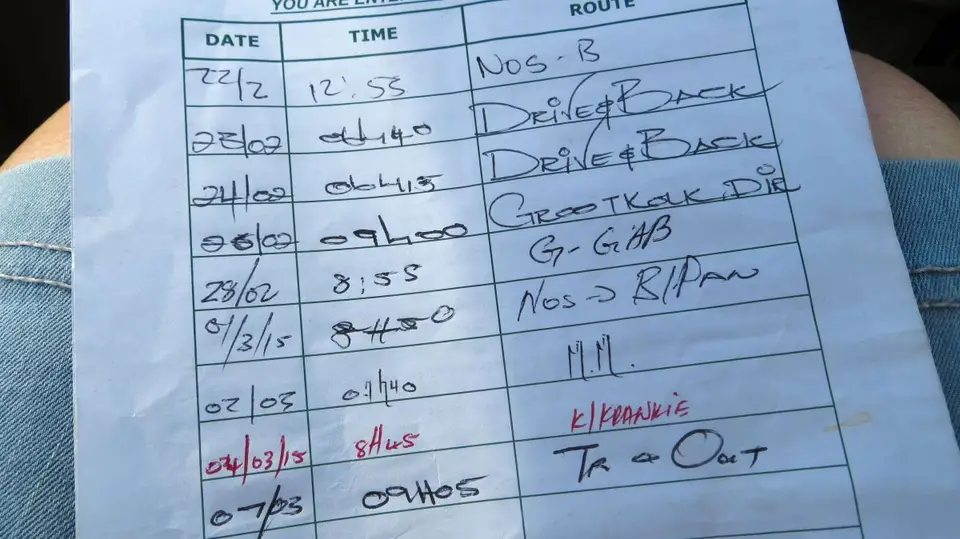 YOU ARE
ROUTE
DATE TIME
22/2 12:55 NOS - B
23/02 06h40 DRIVE & BACK
24/02 06h45 DRIVE & BACK
09h00 GROOTKOLK. DIR
28/02 8:55 G - GIAB
01/3/15 NOS → B/PAN
02/03 M.M.
04/03/15 8H45 K/KRANKIE
07/03 09H05 OUT